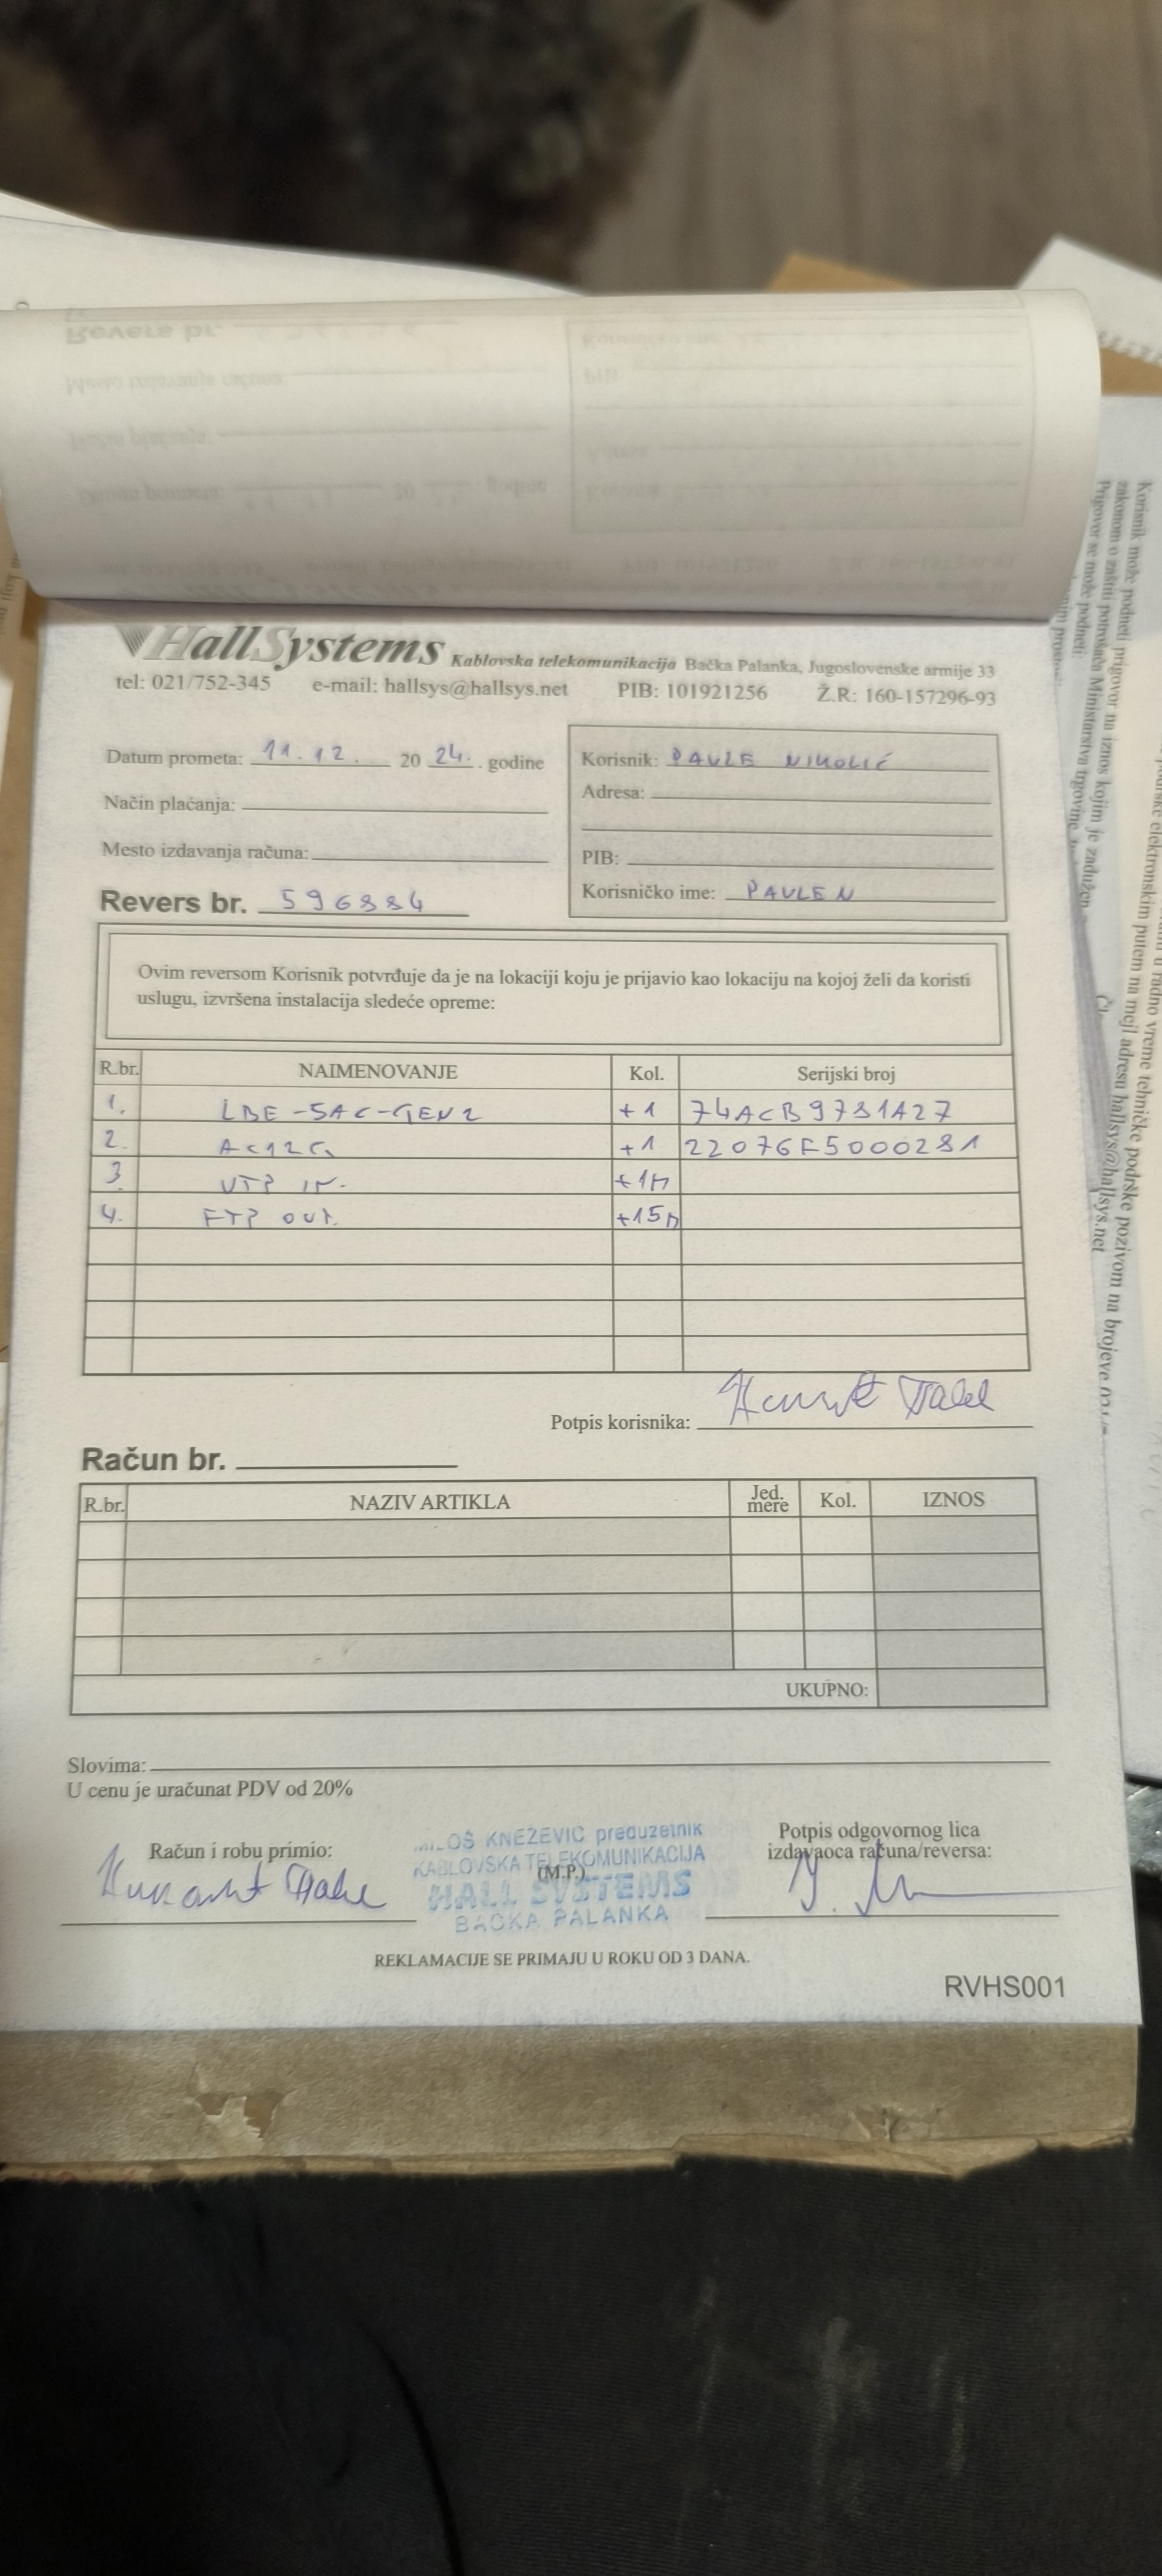 HallSystems Kablovska telekomunikacija Bačka Palanka, Jugoslovenske armije 33
tel: 021/752-345 e-mail: hallsys@hallsys.net PIB: 101921256 Ž.R: 160-157296-93
Datum prometa: 11.12. 20 24. godine
Način plaćanja:
Mesto izdavanja računa:
Revers br. 596884
Korisnik: PAVLE NIKOLIĆ
Adresa:
PIB:
Korisničko ime: PAVLEN
Ovim reversom Korisnik potvrđuje da je na lokaciji koju je prijavio kao lokaciju na kojoj želi da koristi
uslugu, izvršena instalacija sledeće opreme:
R.br. NAIMENOVANJE Kol. Serijski broj
1. LBE-5AC-GEN2 +1 74ACB9781A27
2. AC12G +1 22076F5000281
3. UTP IN. +1m
4. FTP OUT. +15m
Potpis korisnika:
Račun br.
R.br. NAZIV ARTIKLA Jed. mere Kol. IZNOS
UKUPNO:
Slovima:
U cenu je uračunat PDV od 20%
Račun i robu primio:
MILOŠ KNEŽEVIĆ preduzetnik
KABLOVSKA TELEKOMUNIKACIJA
(M.P.)
HALL SYSTEMS
BAČKA PALANKA
Potpis odgovornog lica
izdavaoca računa/reversa:
REKLAMACIJE SE PRIMAJU U ROKU OD 3 DANA.
RVHS001
Korisnik može podneti prigovor na iznos kojim je zadužen
zakonom o zaštiti potrošača Ministarstva trgovine
Prigovor se može podneti:
elektronskim putem na mejl adresu hallsys@hallsys.net
u radno vreme tehničke podrške pozivom na brojeve